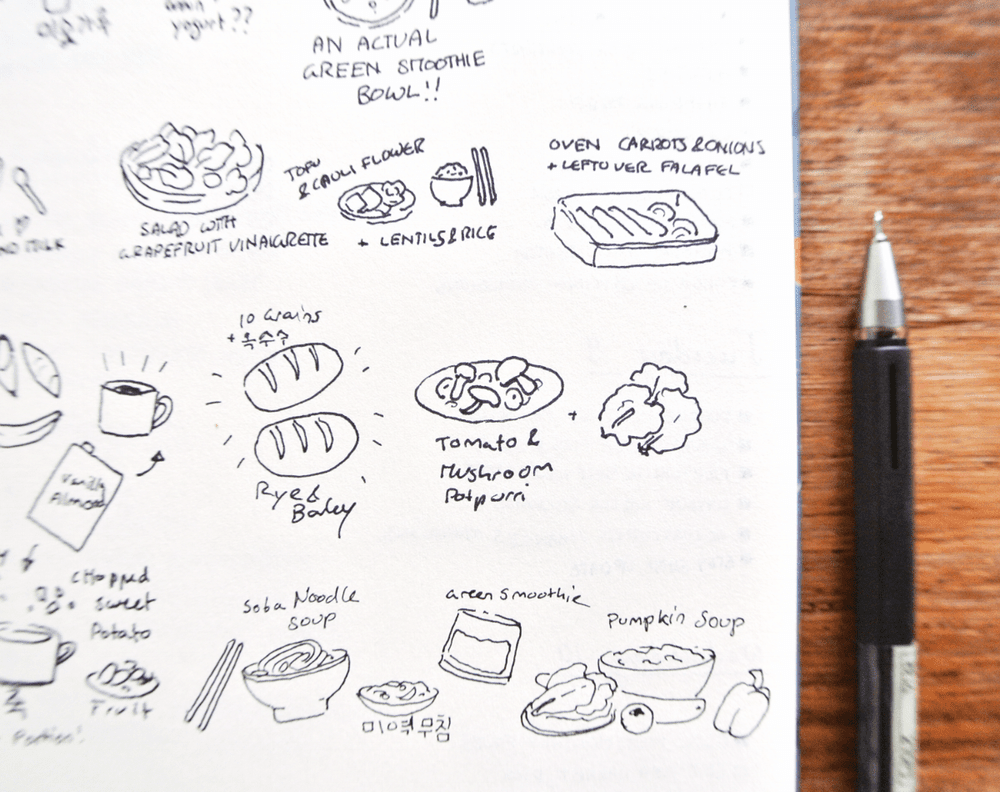 yogurt??
AN ACTUAL
GREEN SMOOTHIE
BOWL!!
MILK
SALAD WITH
GRAPEFRUIT VINAIGRETTE
TOFU
& CAULIFLOWER
+ LENTILS & RICE
OVEN CARROTS & ONIONS
+ LEFTOVER FALAFEL
Vanilla
Almond
10 Grains
+ 옥수수
Rye &
Barley
Tomato &
Mushroom
Potpurri
+
Chopped
Sweet
Potato
Fruit
죽
Portion!
Soba Noodle
Soup
미역무침
Green Smoothie
Pumpkin Soup